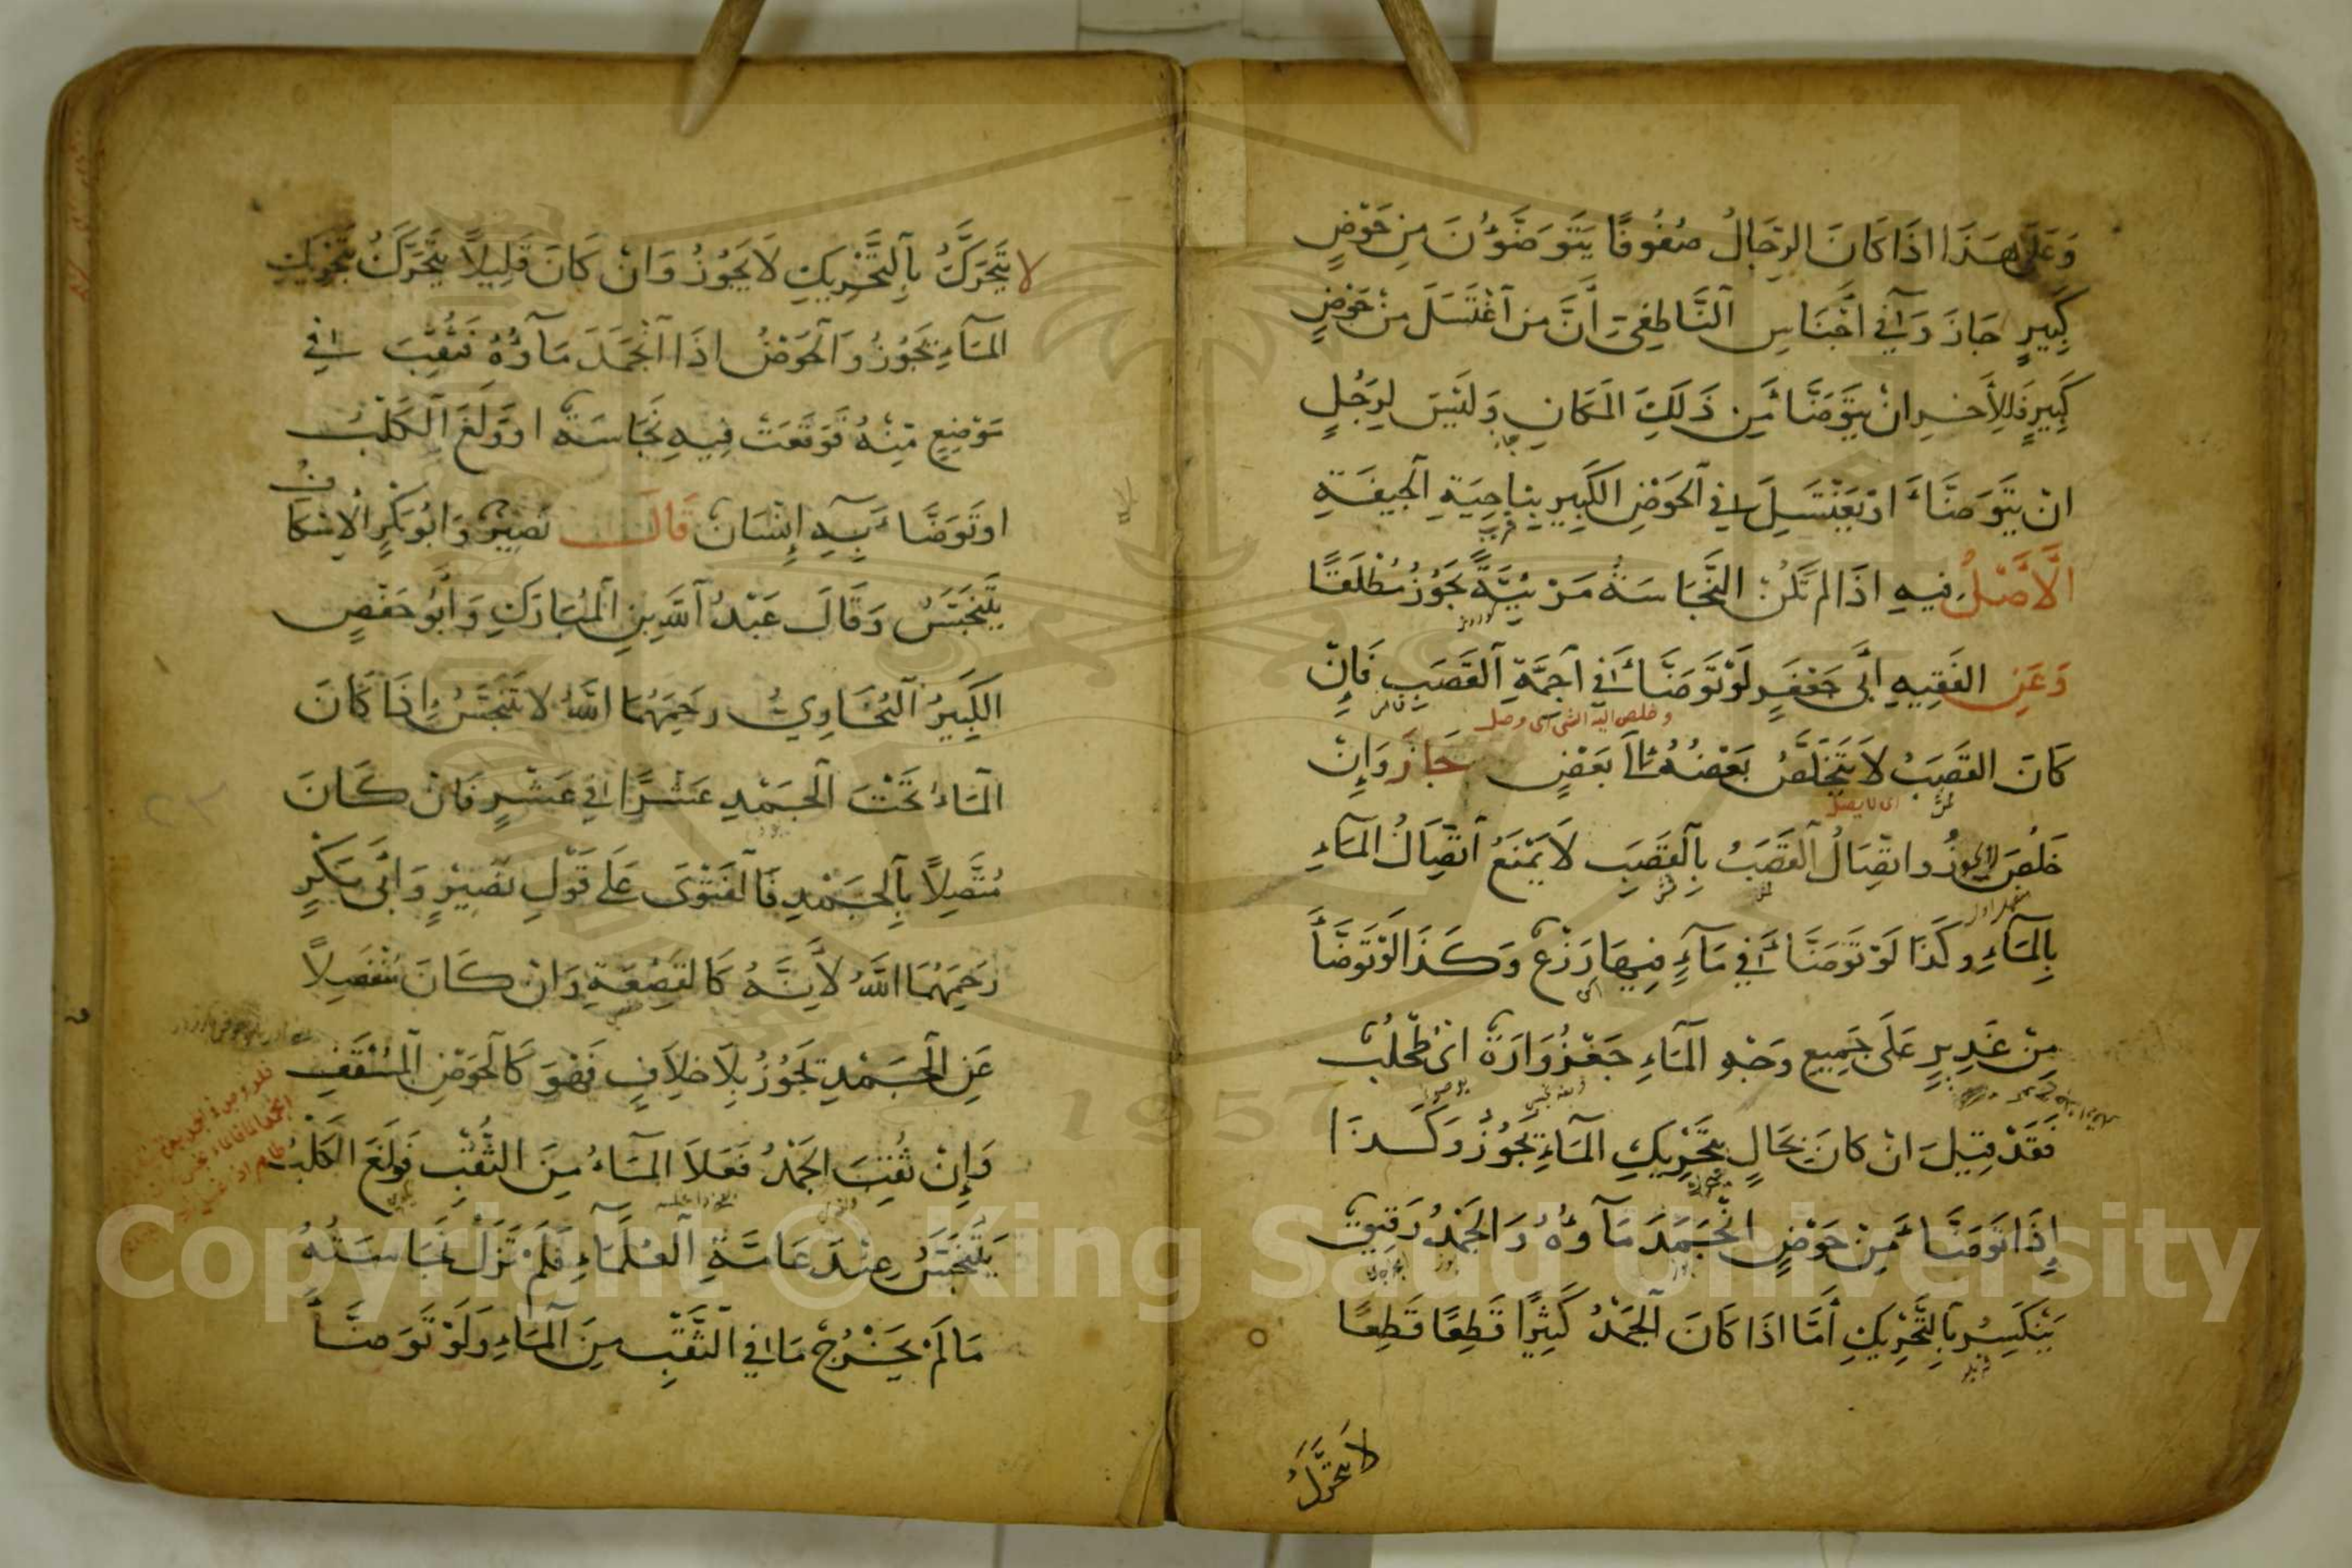 وَعَلَى هَذَا اذَا كَانَ الرِّجَالُ صُفُوفًا يَتَوَضَّؤُنَ مِنْ حَوْضٍ
كَبِيرٍ جَازَ وَفِي اَجْنَاسِ النَّاطِفِي اَنَّ مَن اَغْتَسَلَ مِنْ حَوْضٍ
كَبِيرٍ فَلِلأَخَرِ انْ يَتَوَضَّأَ مِن ذَلِكَ المَكَانِ وَلَيْسَ لِرَجُلٍ
انْ يَتَوَضَّأَ اوْ يَغْتَسِلَ فِي الحَوْضِ الكَبِيرِ بِنَاحِيَةِ الجِيفَةِ
الأَصْلُ فِيهِ اذَا لم تَكُنْ النَّجَاسَةُ مَرْئِيَّةً يَجُوزُ مُطْلَقًا
وَعَنِ الفَقِيهِ اَبِى جَعْفَرٍ لَوْ تَوَضَّأَ فِي اَجَمَةِ القَصَبِ فَاِنْ
وخلص اليه الشى اى وصل
كَانَ القَصَبُ لاَ يَتَخَلَّصُ بَعْضُهُ الىَ بَعْضٍ جَازَ وَاِنْ
اى لا يصل
خَلُصَ لا يجوزُ واتِّصَالُ القَصَبُ بِالقَصَبِ لاَ يَمْنَعُ اتِّصَالُ المَآءِ
بِالمَآءِ وكَذَا لَوْ تَوَضَّأَ فِي مَآءٍ فِيهَا زَرْعٌ وَكَذَا لَوْ تَوَضَّأَ
مِنْ غَدِيرٍ عَلَى جَمِيعِ وَجْهِ المَاءِ جَغْزُوَارَةٌ اىْ طُحْلُبٌ
فَقَدْ قِيلَ انْ كانَ بِحَالٍ يَتَحَرَّكُ بِتَحْرِيكِ المَآءِ يَجُوزُ وَكَذَا
إِذَا تَوَضَّأَ مِنْ حَوْضٍ انْجَمَدَ مَآؤُهُ وَالجَمْدُ رَقِيقٌ
يَنْكَسِرُ بِالتَّحْرِيكِ أَمَّا اذَا كَانَ الجَمْدُ كَثِيرًا قَطِعًا قَطِعًا
لاَ يَتَحَرَّكُ
لا يَتَحَرَّكُ بِالتَّحْرِيكِ لاَ يَجُوزُ وَانْ كَانَ قَلِيلاً يَتَحَرَّكُ بِتَحْرِيكِ
المَآءِ يَجُوزُ وَالحَوْضُ اذَا انْجَمَدَ مَآؤُهُ فَثُقِبَ فِي
مَوْضِعٍ مِنْهُ فَوَقَعَتْ فِيهِ نَجَاسَةٌ اوْ وَلَغَ الكَلْبُ
اوتَوَضَّأَ بِهِ اِنْسَانٌ قَالَ نُصَيْرٌ وَابُوبَكْرٍ الاِسْكَافُ
يَتَنَجَّسُ وَقَالَ عَبْدُ اللهِ بنِ المُبَارَكِ وَاَبُو حَفْصٍ
الكَبِيرُ البُخَاوِيُّ رحَمِهُمَا اللهُ لاَ تَنَجَّسُ اِذَا كَانَ
المَاءُ تَحْتَ الجَمْدِ عَشْرًا فِي عَشْرٍ فَانْ كَانَ
مُتَّصِلاً بِالجَمْدِ فَالفَتْوَى عَلَى قَوْلِ نُصَيْرٍ وَاَبِى بَكْرٍ
رَحِمَهُمَا اللهُ لاَنَّهُ كَالقَصْعَةِ وَانْ كَانَ مُنْفَصِلاً
عَنِ الجَمْدِ يَجُوزُ بِلاَ خِلاَفٍ فَهُوَ كَالحَوْضِ المُسْقَفِ
وَإِنْ ثُقِبَ الجَمْدُ فَعَلاَ المَآءُ مِنَ الثُّقْبِ فَوَلَغَ الكَلْبُ
يَتَنَجَّسُ عِنْدَ عَامَّةِ العُلَمَآءِ فَلَمْ تَزَلْ نَجَاسَتُهُ
مَا لَمْ يَخْرُجْ مَا فِي الثَّقْبِ مِنَ المَاءِ وَلَوْ تَوَضَّأَ
1957
Copyright © King Saud University